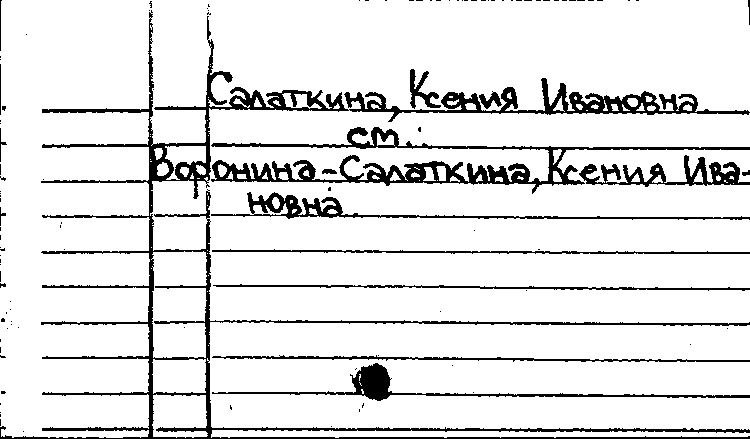 Салаткина, Ксения Ивановна.
см.:
Воронина-Салаткина, Ксения Ива-
новна.